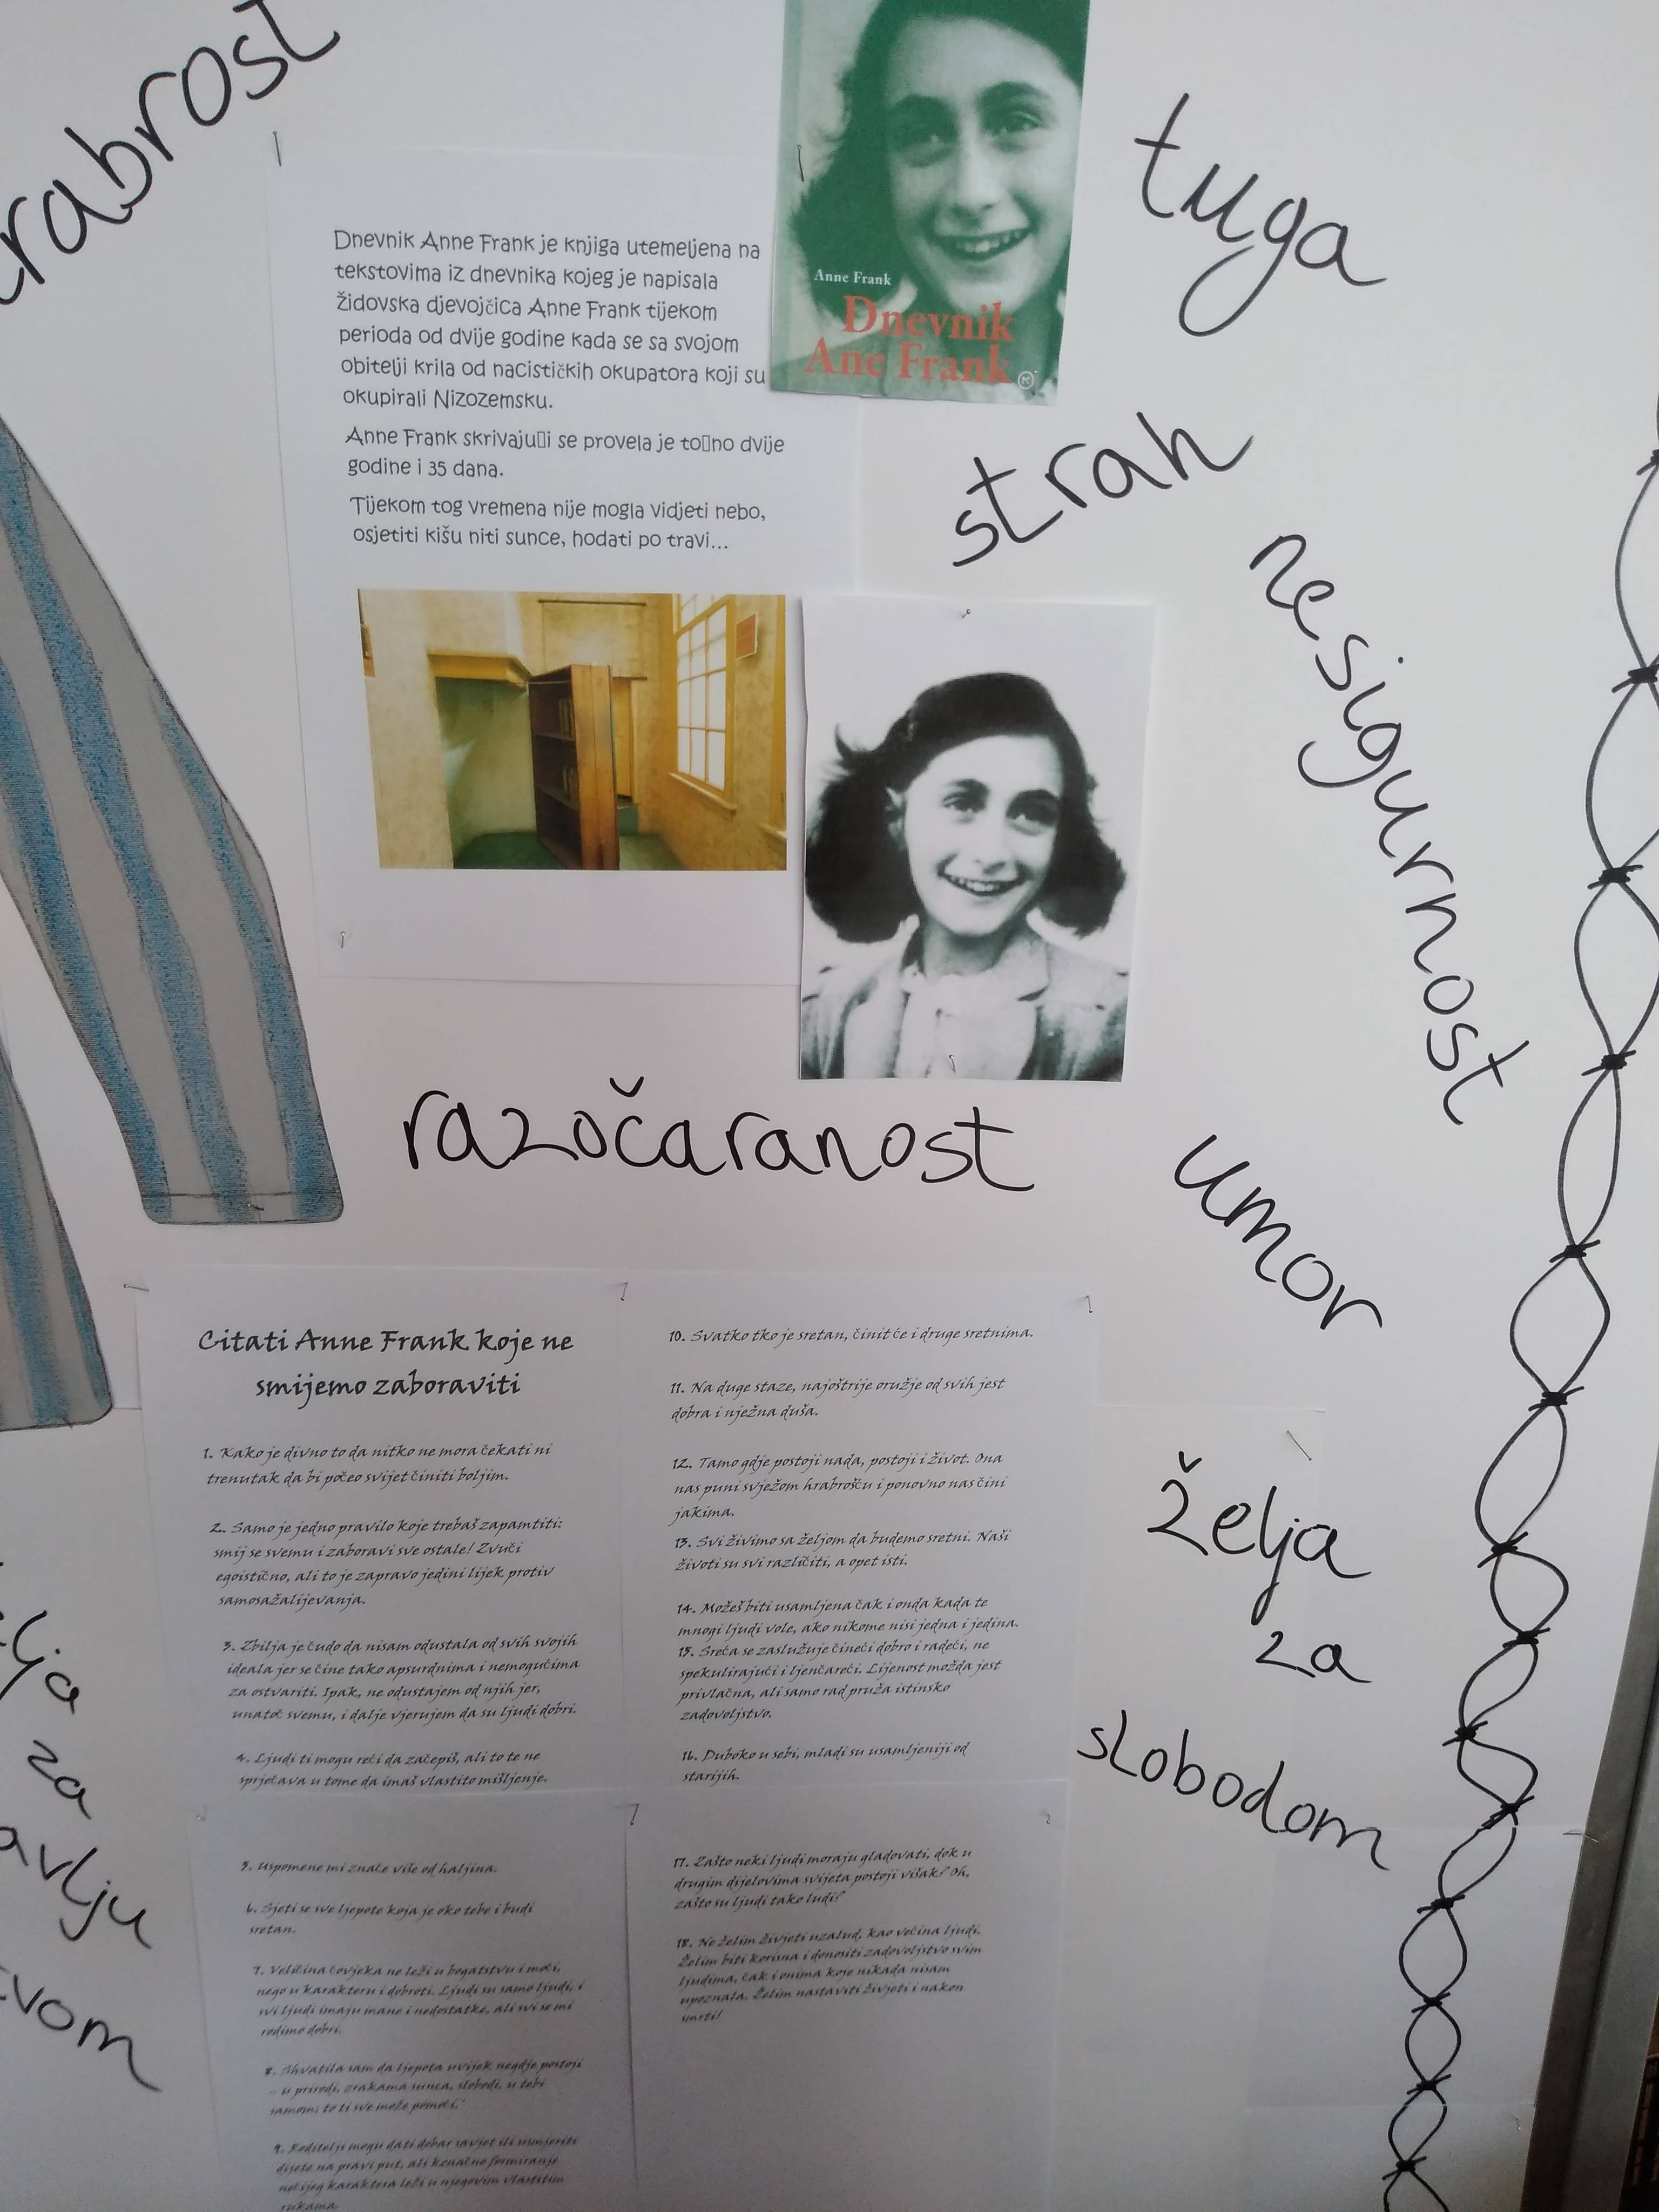 rabrost
Dnevnik Anne Frank je knjiga utemeljena na
tekstovima iz dnevnika kojeg je napisala
židovska djevojčica Anne Frank tijekom
perioda od dvije godine kada se sa svojom
obitelji krila od nacističkih okupatora koji su
okupirali Nizozemsku.
Anne Frank skrivaju▯i se provela je to▯no dvije
godine i 35 dana.
Tijekom tog vremena nije mogla vidjeti nebo,
osjetiti kišu niti sunce, hodati po travi...
Anne Frank
Dnevnik
Ane Frank
tuga
strah
nesigurnost
razočaranost
umor
želja
za
slobodom
lja
za
avlju
vom
Citati Anne Frank koje ne
smijemo zaboraviti
1. Kako je divno to da nitko ne mora čekati ni
trenutak da bi počeo svijet činiti boljim.
2. Samo je jedno pravilo koje trebaš zapamtiti:
smij se svemu i zaboravi sve ostale! Zvuči
egoistično, ali to je zapravo jedini lijek protiv
samosažalijevanja.
3. Zbilja je čudo da nisam odustala od svih svojih
ideala jer se čine tako apsurdnima i nemogućima
za ostvariti. Ipak, ne odustajem od njih jer,
unatoč svemu, i dalje vjerujem da su ljudi dobri.
4. Ljudi ti mogu reći da začepiš, ali to te ne
sprječava u tome da imaš vlastito mišljenje.
5. Uspomene mi znače više od haljina.
6. Sjeti se sve ljepote koja je oko tebe i budi
sretan.
7. Veličina čovjeka ne leži u bogatstvu i moći,
nego u karakteru i dobroti. Ljudi su samo ljudi, i
svi ljudi imaju mane i nedostatke, ali svi se mi
rodimo dobri.
8. Shvatila sam da ljepota uvijek negdje postoji
- u prirodi, zrakama sunca, slobodi, u tebi
samom; to ti sve može pomoći."
9. Roditelji mogu dati dobar savjet ili usmjeriti
dijete na pravi put, ali konačno formiranje
nečijeg karaktera leži u njegovim vlastitim
rukama.
10. Svatko tko je sretan, činit će i druge sretnima.
11. Na duge staze, najoštrije oružje od svih jest
dobra i nježna duša.
12. Tamo gdje postoji nada, postoji i život. Ona
nas puni svježom hrabrošću i ponovno nas čini
jakima.
13. Svi živimo sa željom da budemo sretni. Naši
životi su svi različiti, a opet isti.
14. Možeš biti usamljena čak i onda kada te
mnogi ljudi vole, ako nikome nisi jedna i jedina.
15. Sreća se zaslužuje čineći dobro i radeći, ne
spekulirajući i ljenčareći. Lijenost možda jest
privlačna, ali samo rad pruža istinsko
zadovoljstvo.
16. Duboko u sebi, mladi su usamljeniji od
starijih.
17. Zašto neki ljudi moraju gladovati, dok u
drugim dijelovima svijeta postoji višak? Oh,
zašto su ljudi tako ludi?
18. Ne želim živjeti uzalud, kao većina ljudi.
Želim biti korisna i donositi zadovoljstvo svim
ljudima, čak i onima koje nikada nisam
upoznala. Želim nastaviti živjeti i nakon
smrti!